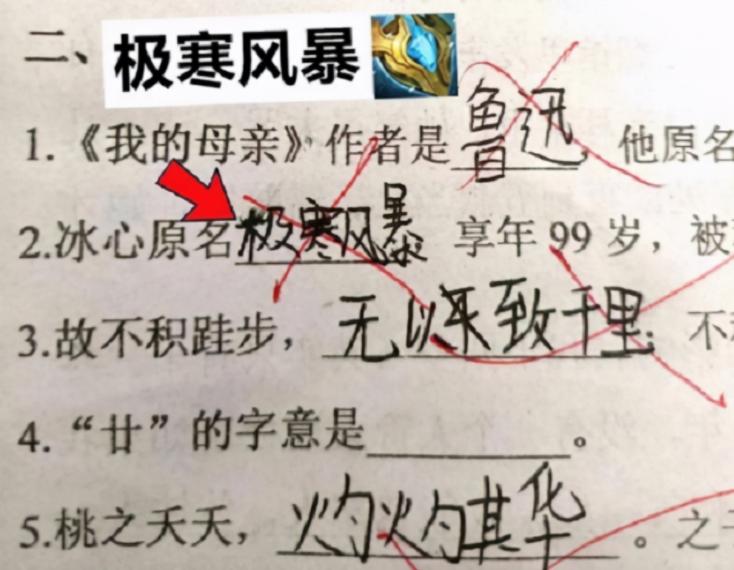 二、极寒风暴
1.《我的母亲》作者是鲁迅，他原名
2.冰心原名极寒风暴 享年 99 岁，被
3.故不积跬步，无以来致千里；不
4.“廿”的字意是 。
5.桃之夭夭，灼灼其华。之